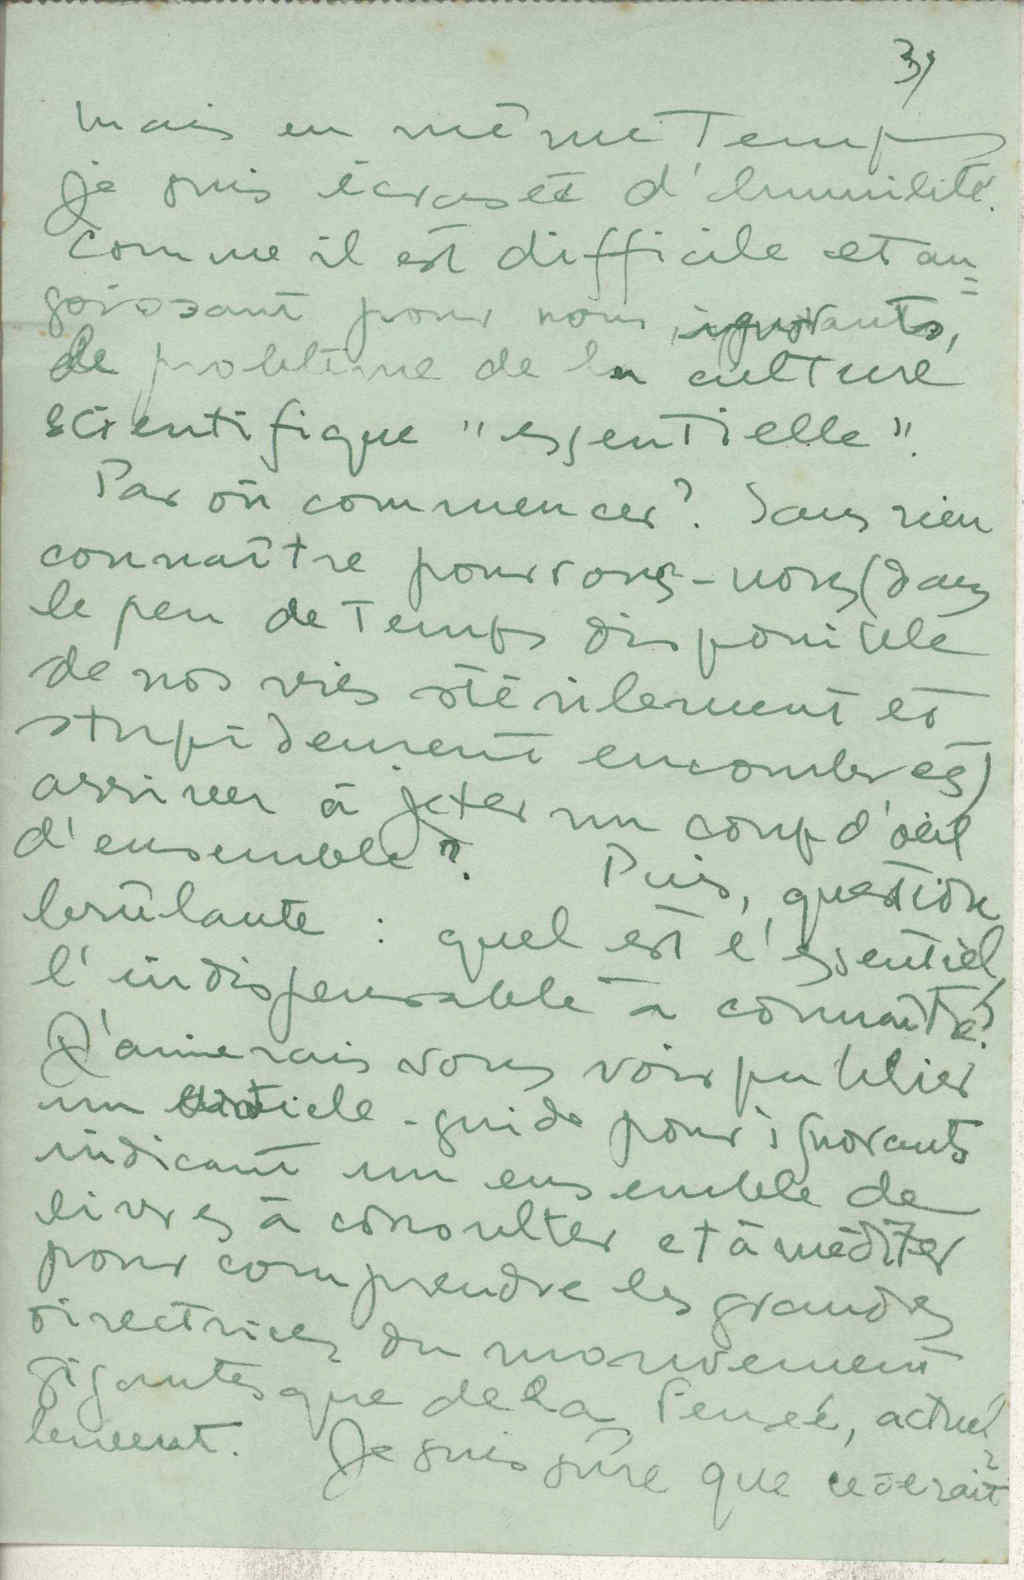 3/
mais en même Temps
je suis écrasée d'humilité.
Comme il est difficile et an=
goissant pour nous, ignorants,
le problème de la culture
scientifique "essentielle".
Par où commencer? Sans rien
connaître pourrons-nous (dans
le peu de Temps disponible
de nos vies stérilement et
stupidement encombrées)
arriver à jeter un coup d'œil
d'ensemble? Puis, question
brûlante : quel est l'essentiel,
l'indispensable à connaître?
J'aimerais vous voir publier
un article-guide pour ignorants
indicant un ensemble de
livres à consulter et à méditer
pour comprendre les grandes
directrices du mouvement
gigantesque de la Pensée, actuel=
lement. Je suis sûre que ce serait